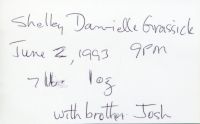 Shelley Danielle Grassick
June 2, 1993 9PM
7 lb 1 oz
with brother Josh